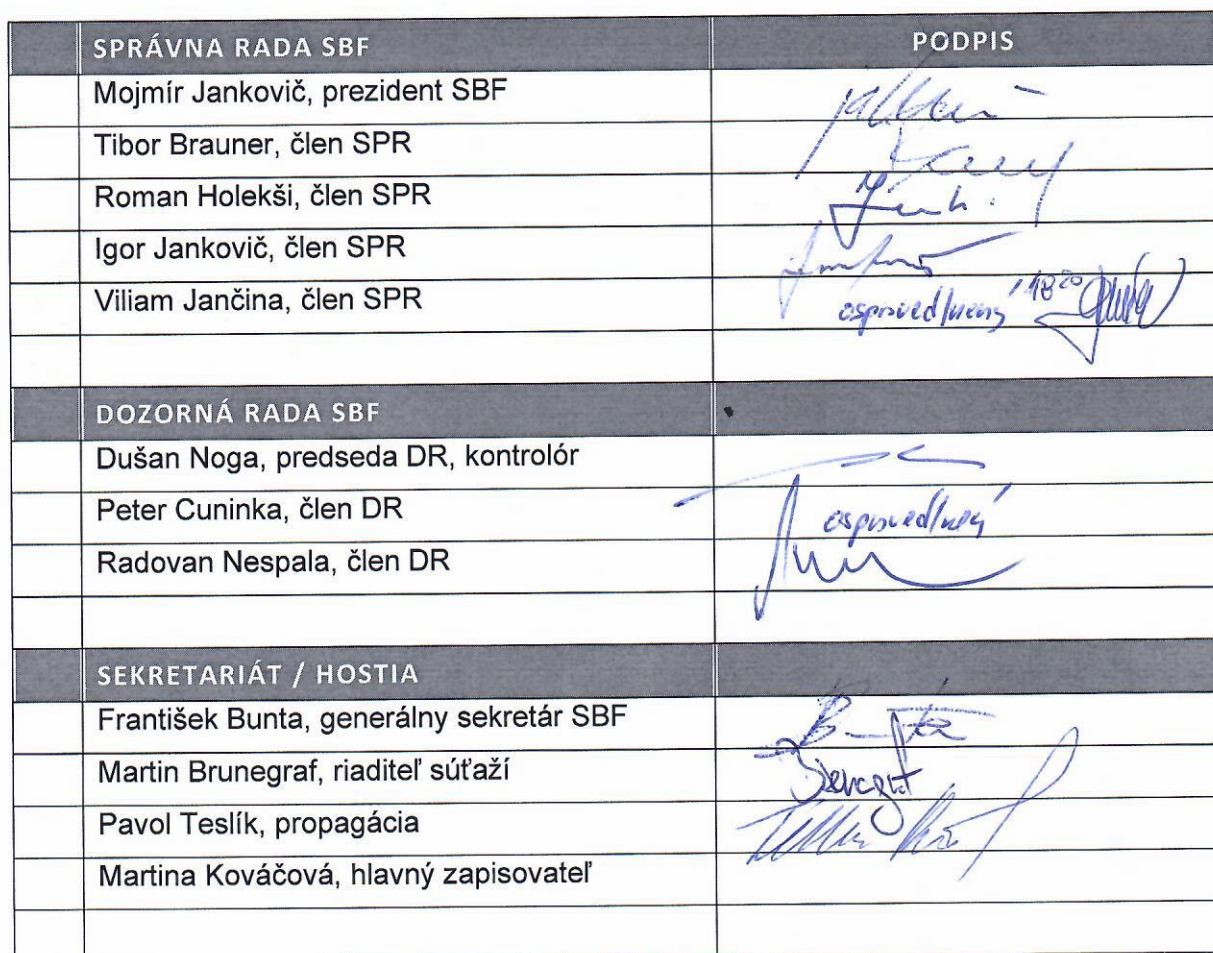 SPRÁVNA RADA SBF PODPIS
Mojmír Jankovič, prezident SBF
Tibor Brauner, člen SPR
Roman Holekši, člen SPR
Igor Jankovič, člen SPR
Viliam Jančina, člen SPR ospravedlnený 18 20
DOZORNÁ RADA SBF
Dušan Noga, predseda DR, kontrolór
Peter Cuninka, člen DR ospravedlnený
Radovan Nespala, člen DR
SEKRETARIÁT / HOSTIA
František Bunta, generálny sekretár SBF Bunta
Martin Brunegraf, riaditeľ súťaží
Pavol Teslík, propagácia
Martina Kováčová, hlavný zapisovateľ